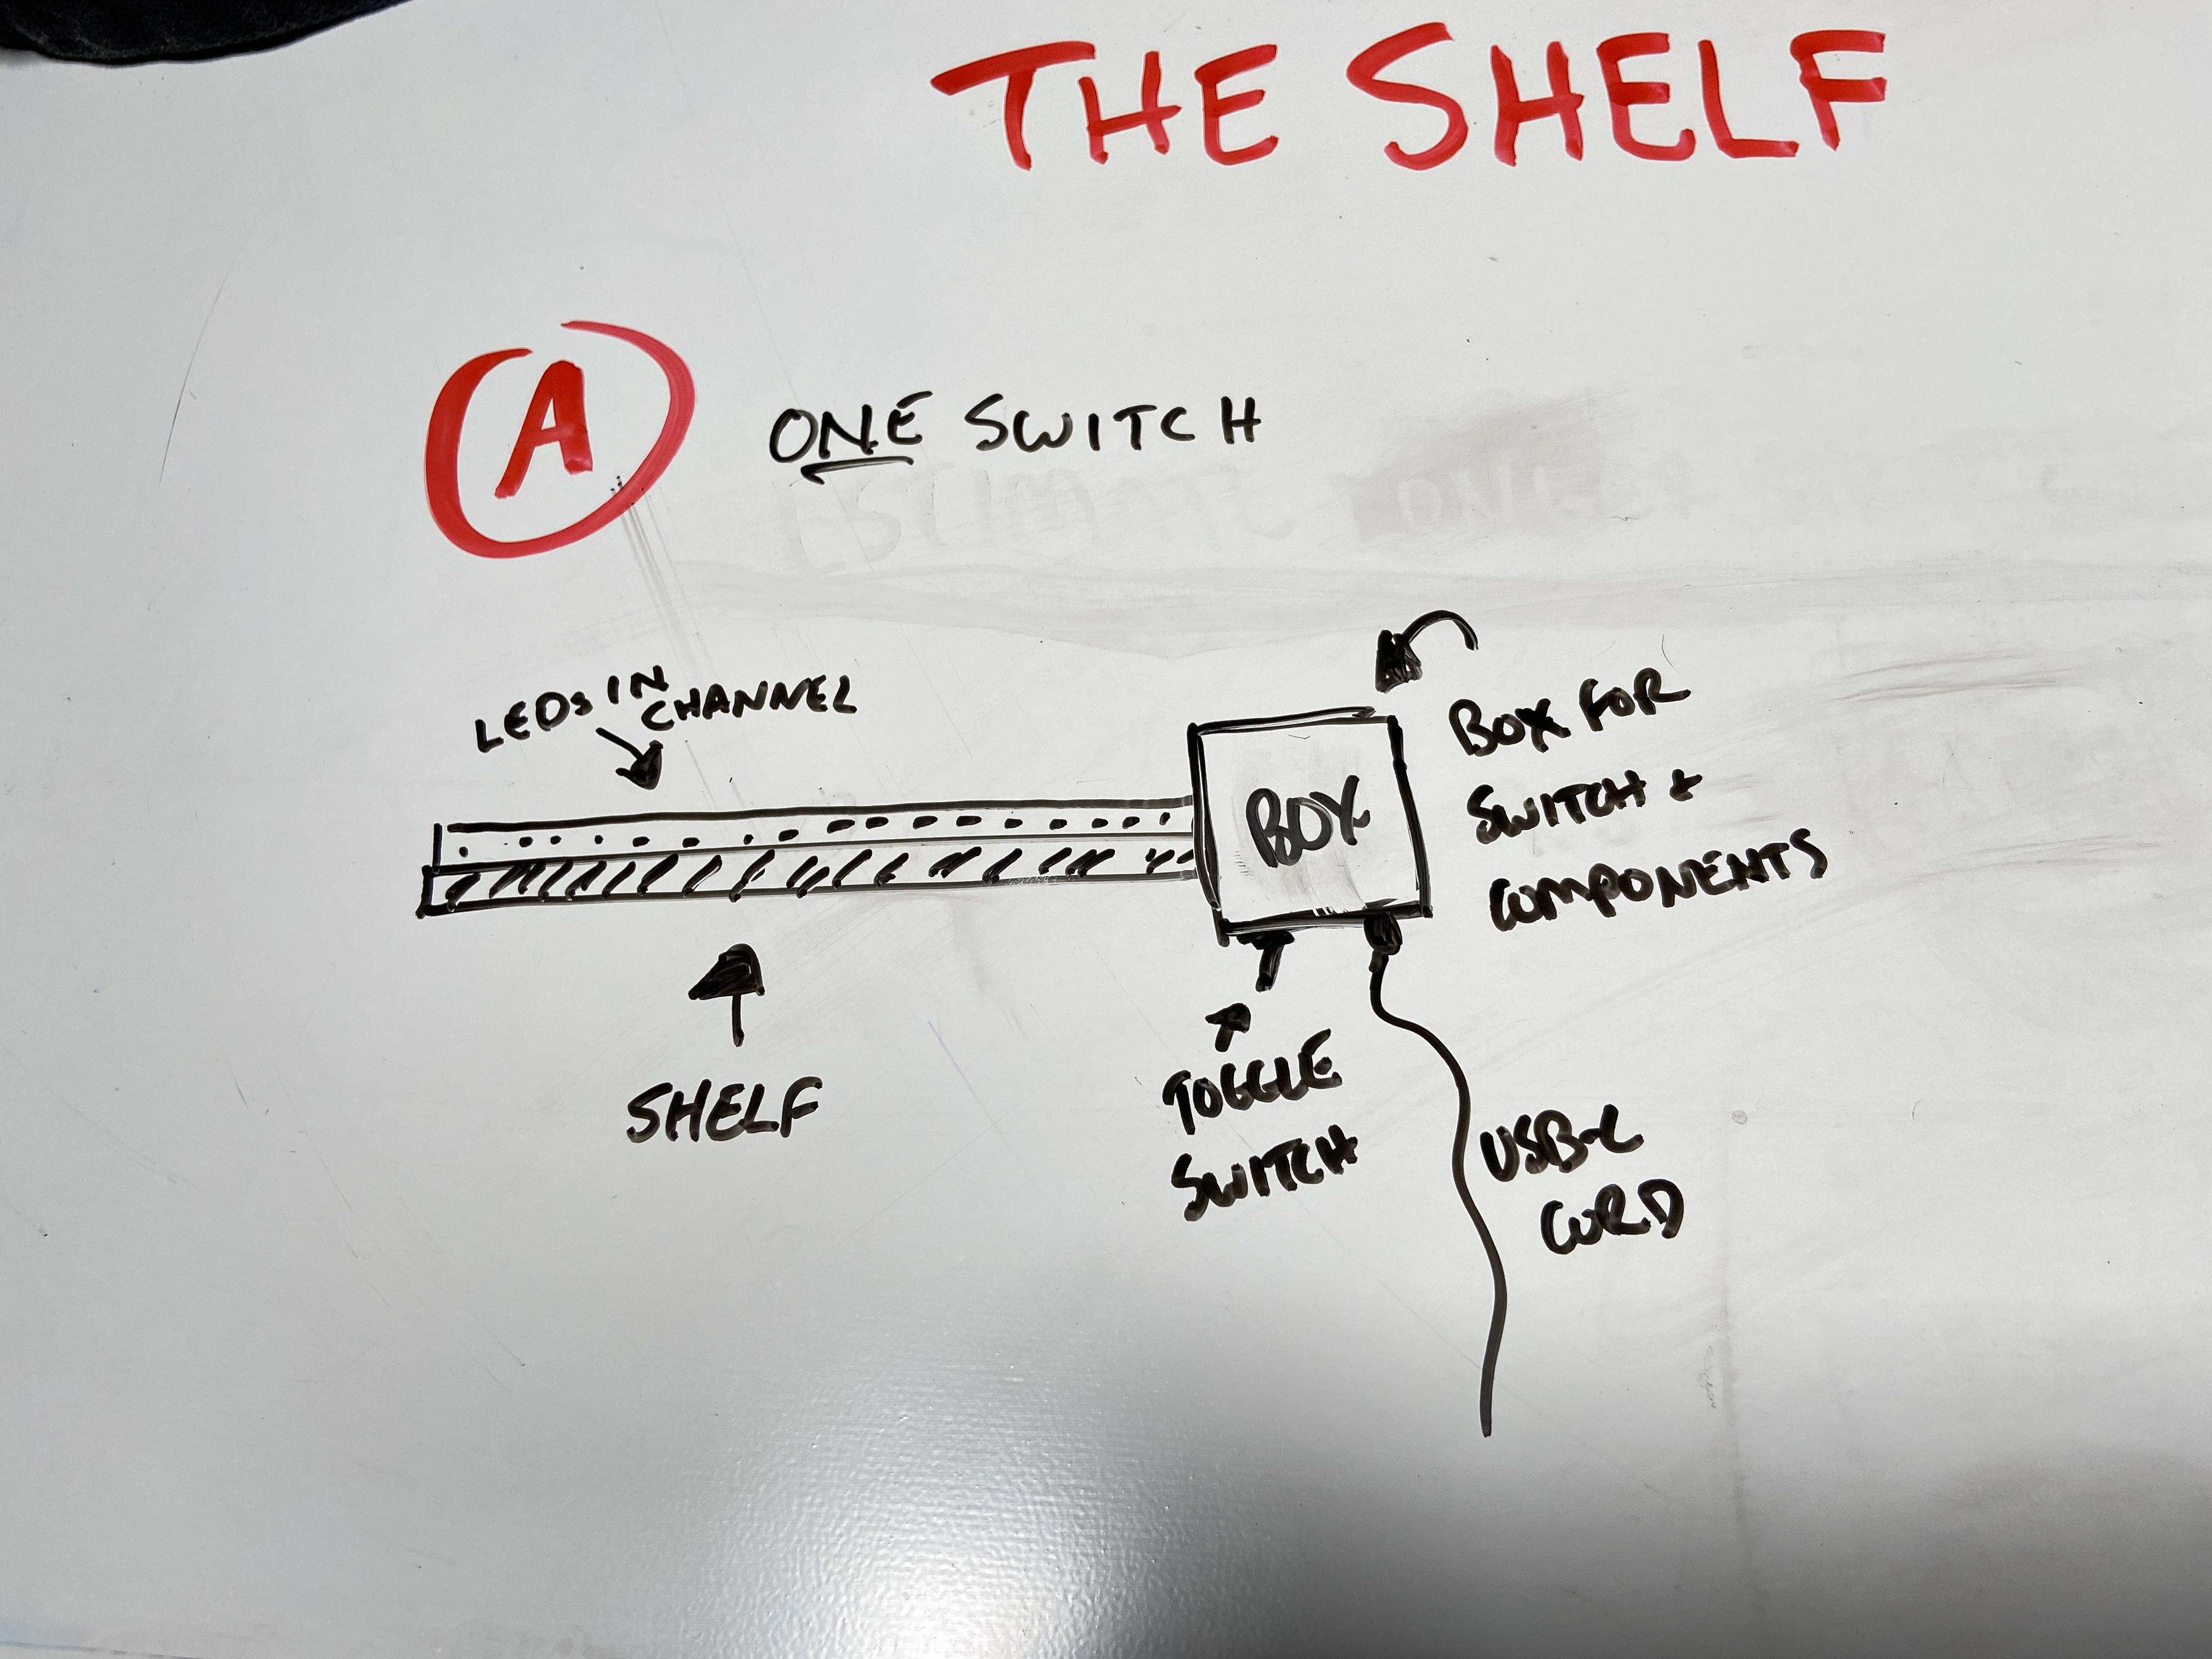 THE SHELF
A
ONE SWITCH
LEDs IN
CHANNEL
BOX
BOX FOR
SWITCH +
COMPONENTS
SHELF
TOGGLE
SWITCH
USB-C
CORD